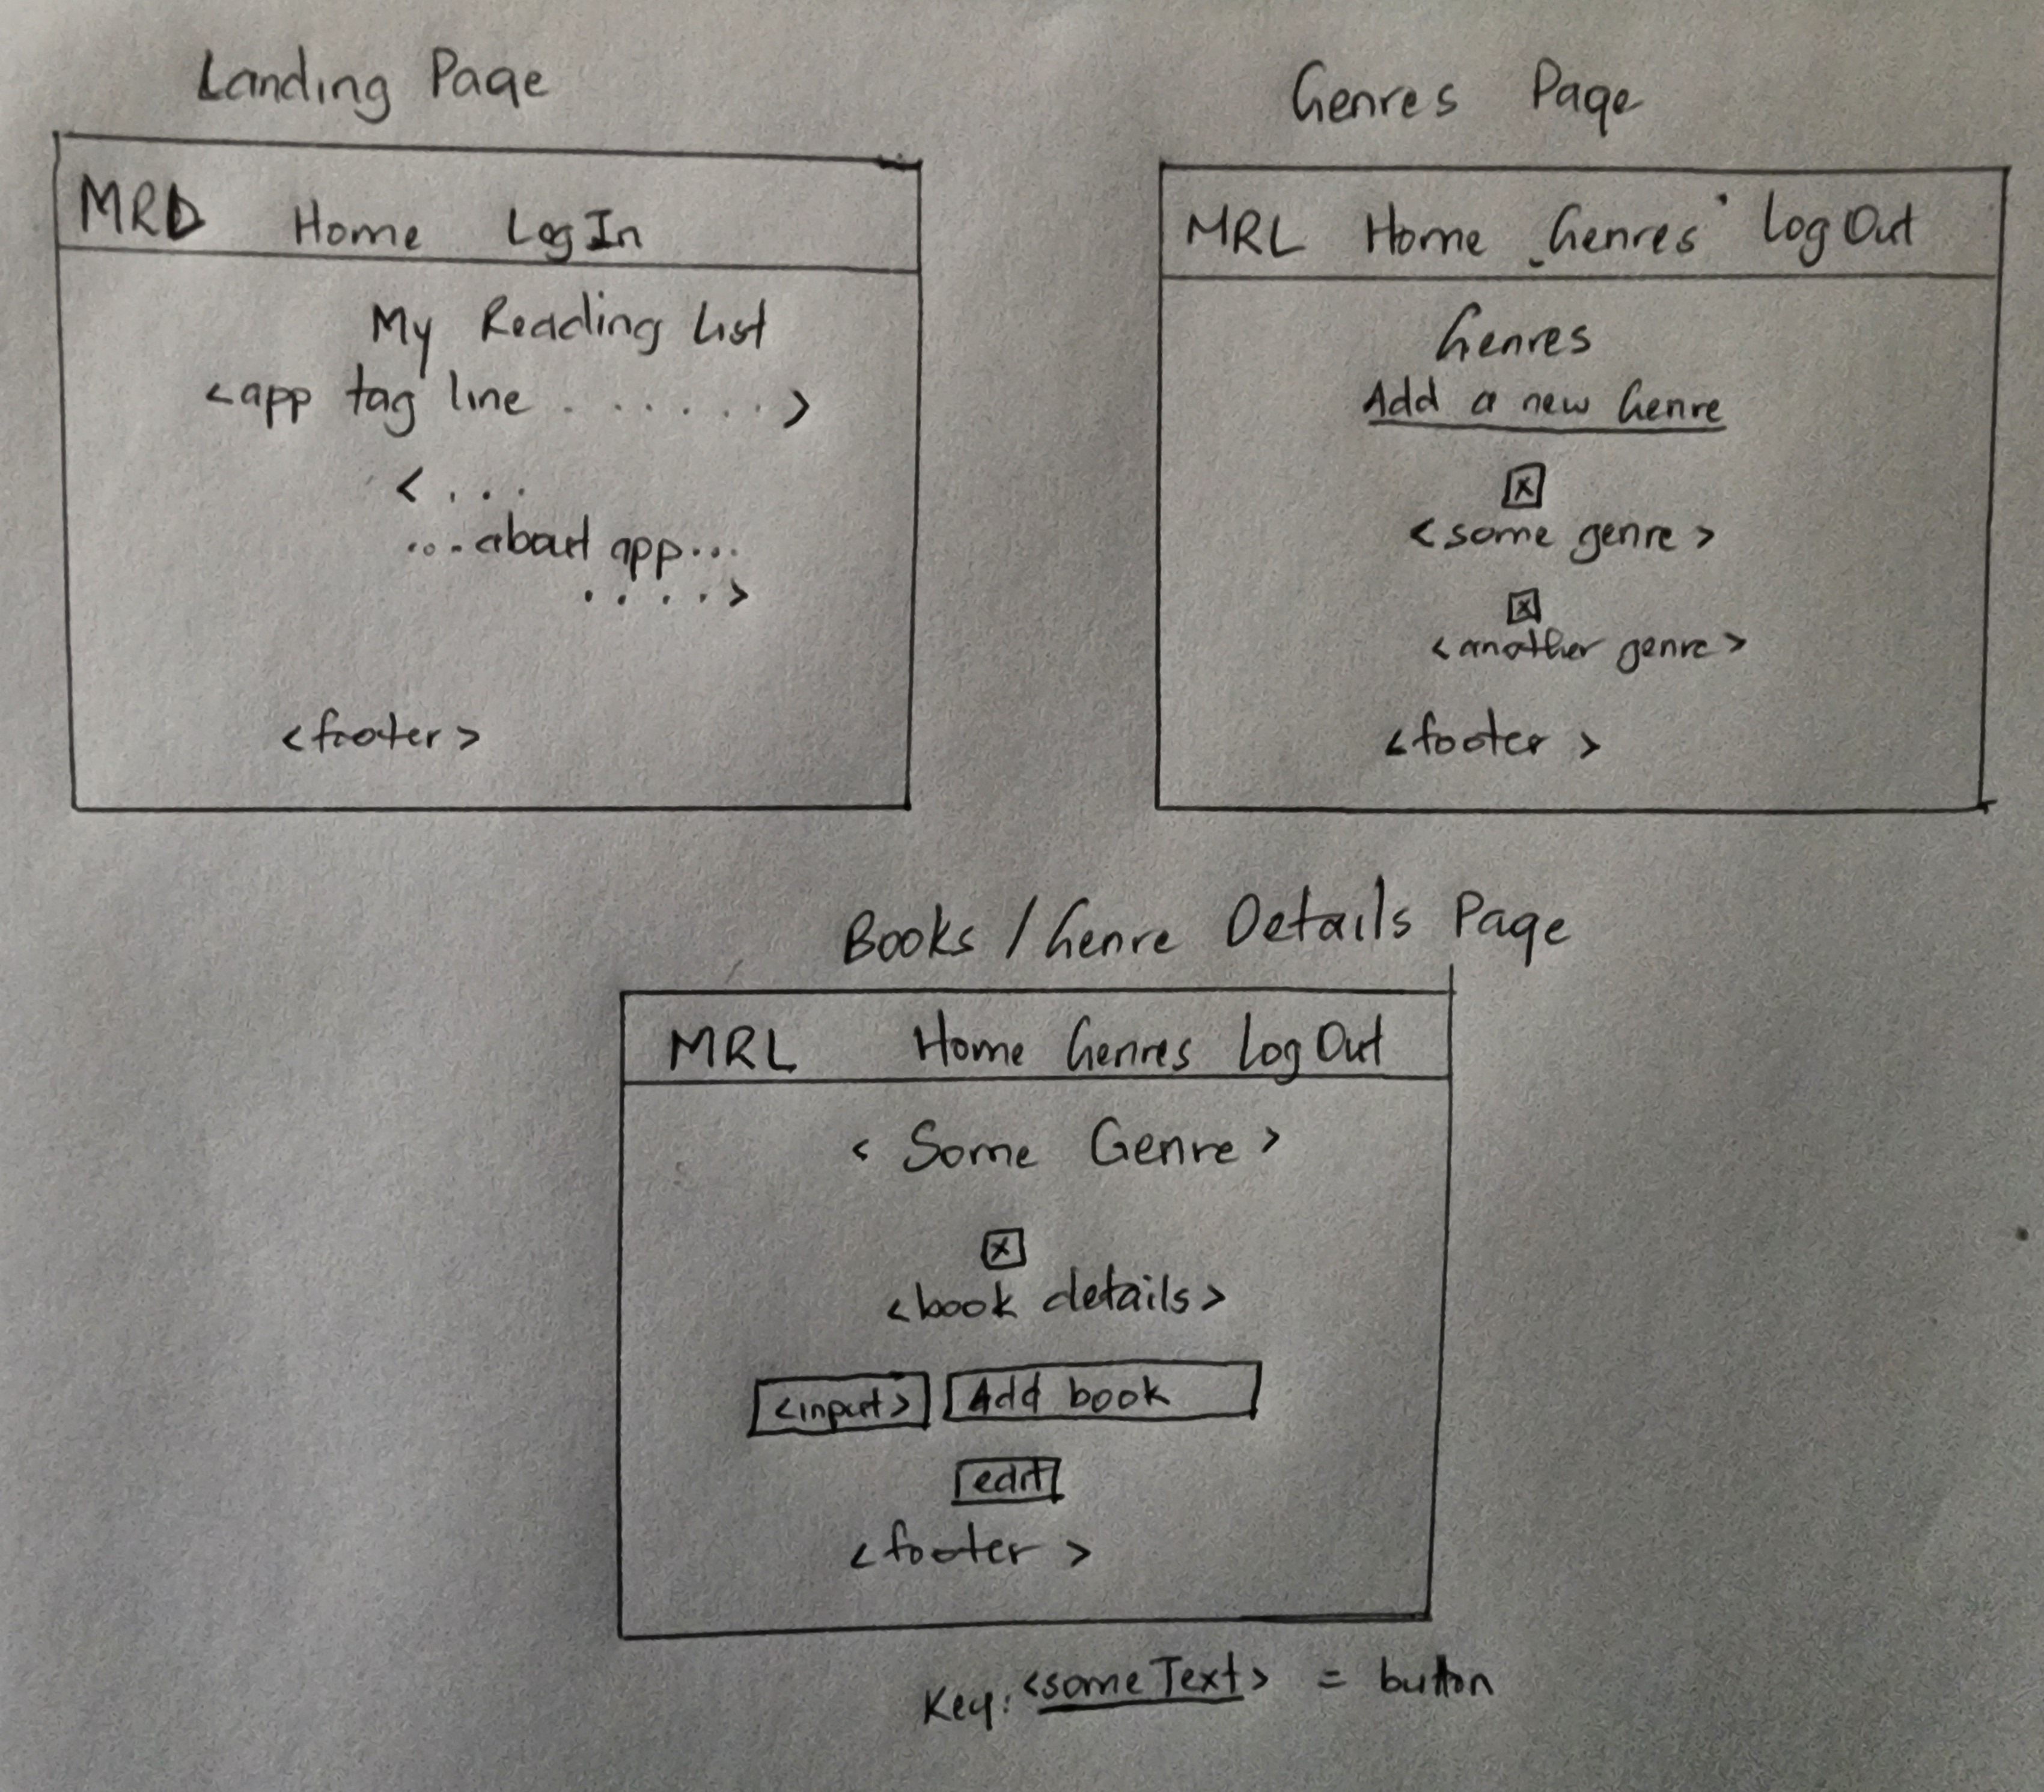 Landing Page
MRL Home Log In
My Reading List
<app tag line . . . . . . >
< . . .
... about app ...
. . . . >
<footer>
Genres Page
MRL Home Genres Log Out
Genres
Add a new Genre
x
<some genre>
x
<another genre>
<footer >
Books / Genre Details Page
MRL Home Genres Log Out
< Some Genre >
x
<book details>
<input> Add book
edit
<footer >
Key: <some Text> = button